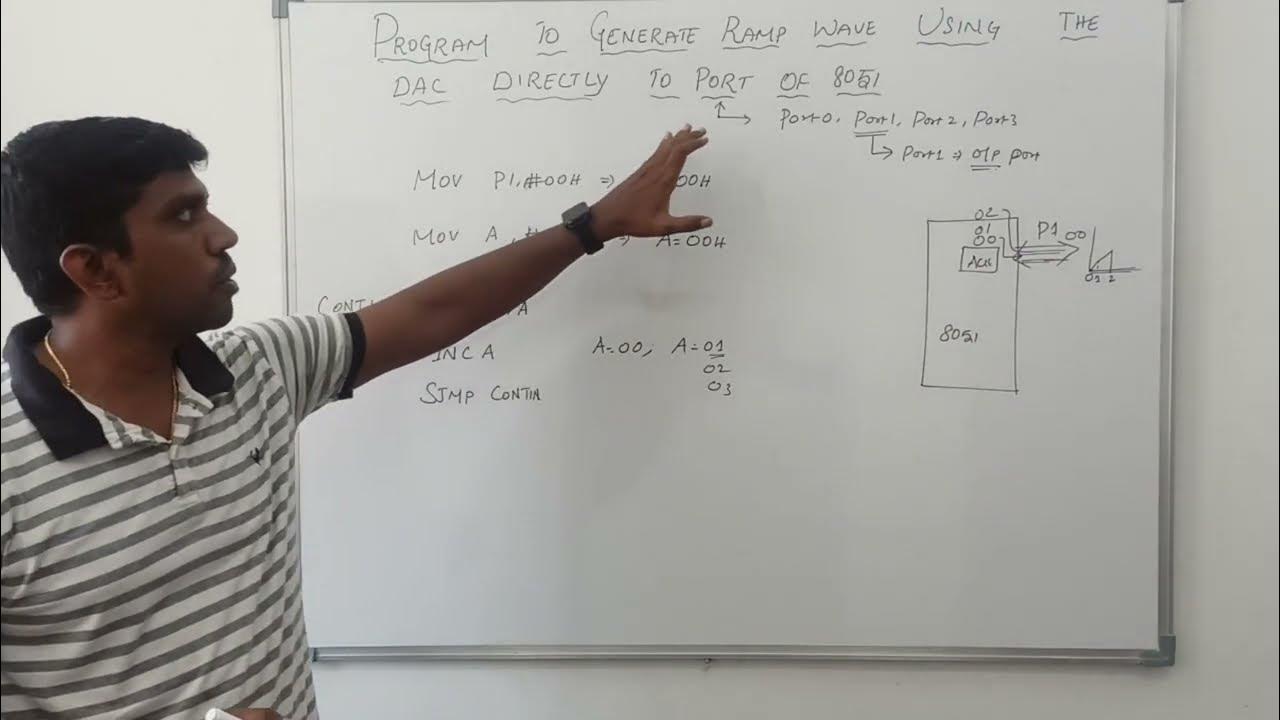 PROGRAM TO GENERATE RAMP WAVE USING THE
DAC DIRECTLY TO PORT OF 8051
Port0, Port1, Port2, Port3
Port1 ⇒ O/P port
MOV P1,#00H ⇒ 00H
MOV A, ⇒ A=00H
A
INC A A=00; A=01
02
03
SJMP CONTIN
02
01
00
ACC
P1
00
8051